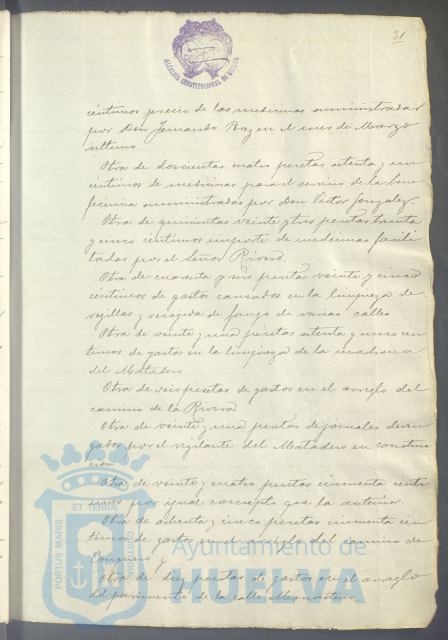 31
ALCALDÍA CONSTITUCIONAL DE HUELVA
céntimos precio de las medicinas suministradas
por Don Fernando en el mes de Marzo
último.
Otra de doscientas cuatro pesetas setenta y un
céntimos de medicinas para el servicio de la bene
ficencia suministradas por Don Victor Gonzalez.
Otra de quinientas veinte y tres pesetas treinta
y cinco céntimos importe de medicinas facili
tadas por el Señor Rivero.
Otra de cuarenta y seis pesetas veinte y cinco
céntimos de gastos causados en la limpieza de
rejillas y recogida de fango de varias calles
Otra de veinte y una pesetas setenta y cinco cen
timos de gastos en la limpieza de la madrona
del Matadero
Otra de seis pesetas de gastos en el arreglo del
camino de la Rivera
Otra de veinte y una pesetas de jornales deven
gados por el vigilante del Matadero en construc
cion
Otra de veinte y cuatro pesetas cincuenta centi
mos por igual concepto que la anterior.
Otra de ochenta y cinco pesetas cincuenta cen
timos de gastos en el arreglo del camino de
y
Otra de diez pesetas de gastos en el arreglo
del pavimento de la calle
PORTUS MARIS
ET TERRAE
CUSTODIA
Ayuntamiento de
HUELVA